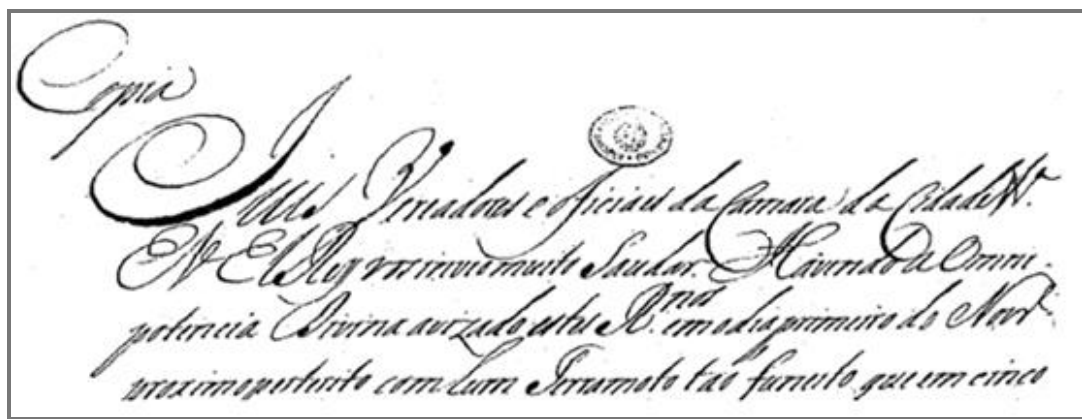 Copia
Juis Vereadores e oficiaes da Camara da Cidade
Eu El Rey vos invio muito Saudar. Havendo a Omni-
potencia Divina avizado estes R.nos em o dia primeiro do Novr.º
proximo preterito com hum Terramoto tao funesto, que em cinco